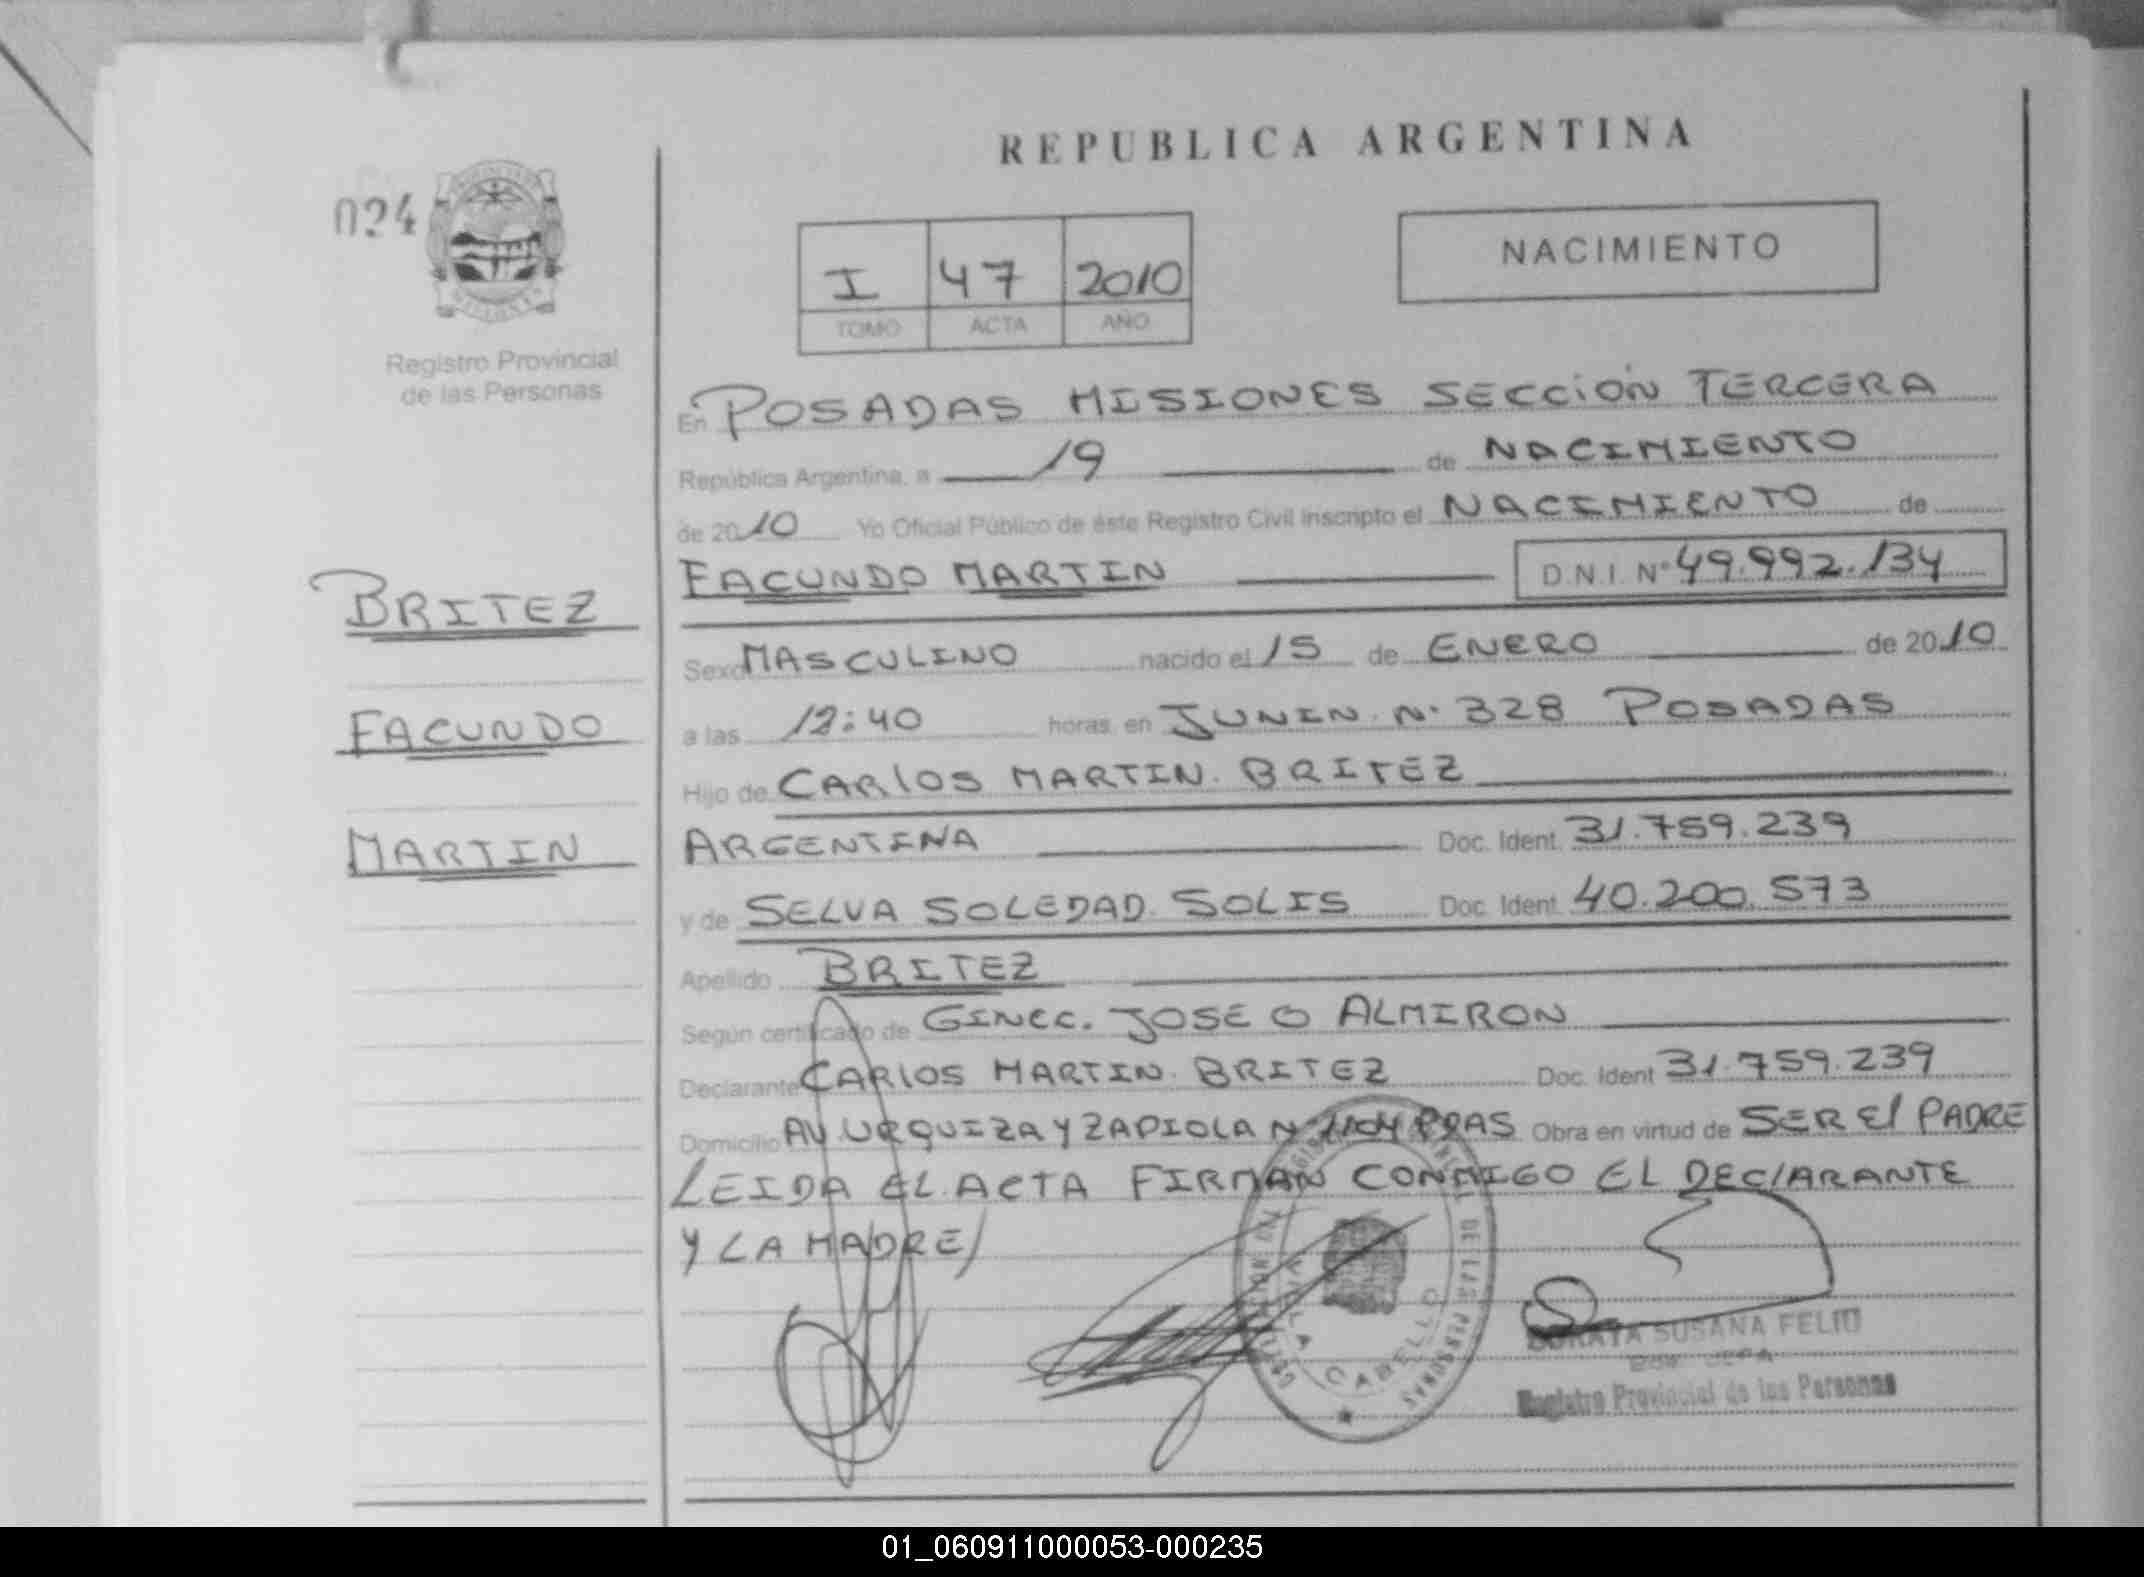 REPUBLICA ARGENTINA
024
I 47 2010
TOMO ACTA AÑO
NACIMIENTO
Registro Provincial
de las Personas
En POSADAS MISIONES SECCION TERCERA
República Argentina, a 19 de NACIMIENTO
de 2010 Yo Oficial Público de éste Registro Civil Inscripto el NACIMIENTO de
FACUNDO MARTIN D.N.I. Nº 49.992.134
BRITEZ
FACUNDO
MARTIN
Sexo MASCULINO nacido el 15 de ENERO de 2010
a las 12:40 horas, en JUNIN Nº 328 POSADAS
Hijo de CARLOS MARTIN BRITEZ
ARGENTINA Doc. Ident. 31.759.239
y de SELVA SOLEDAD SOLIS Doc. Ident. 40.200.573
Apellido BRITEZ
Según certificado de GINEC. JOSE O ALMIRON
Declarante CARLOS MARTIN BRITEZ Doc. Ident 31.759.239
Domicilio AV. URQUIZA Y ZAPIOLA PDAS Obra en virtud de SER El PADRE
LEIDA EL ACTA FIRMAN CONMIGO EL DEClARANTE
Y LA MADRE/
VILLA CABELLO
DE LAS PERSONAS
SUSANA FELIU
Registro Provincial de las Personas
01_060911000053-000235